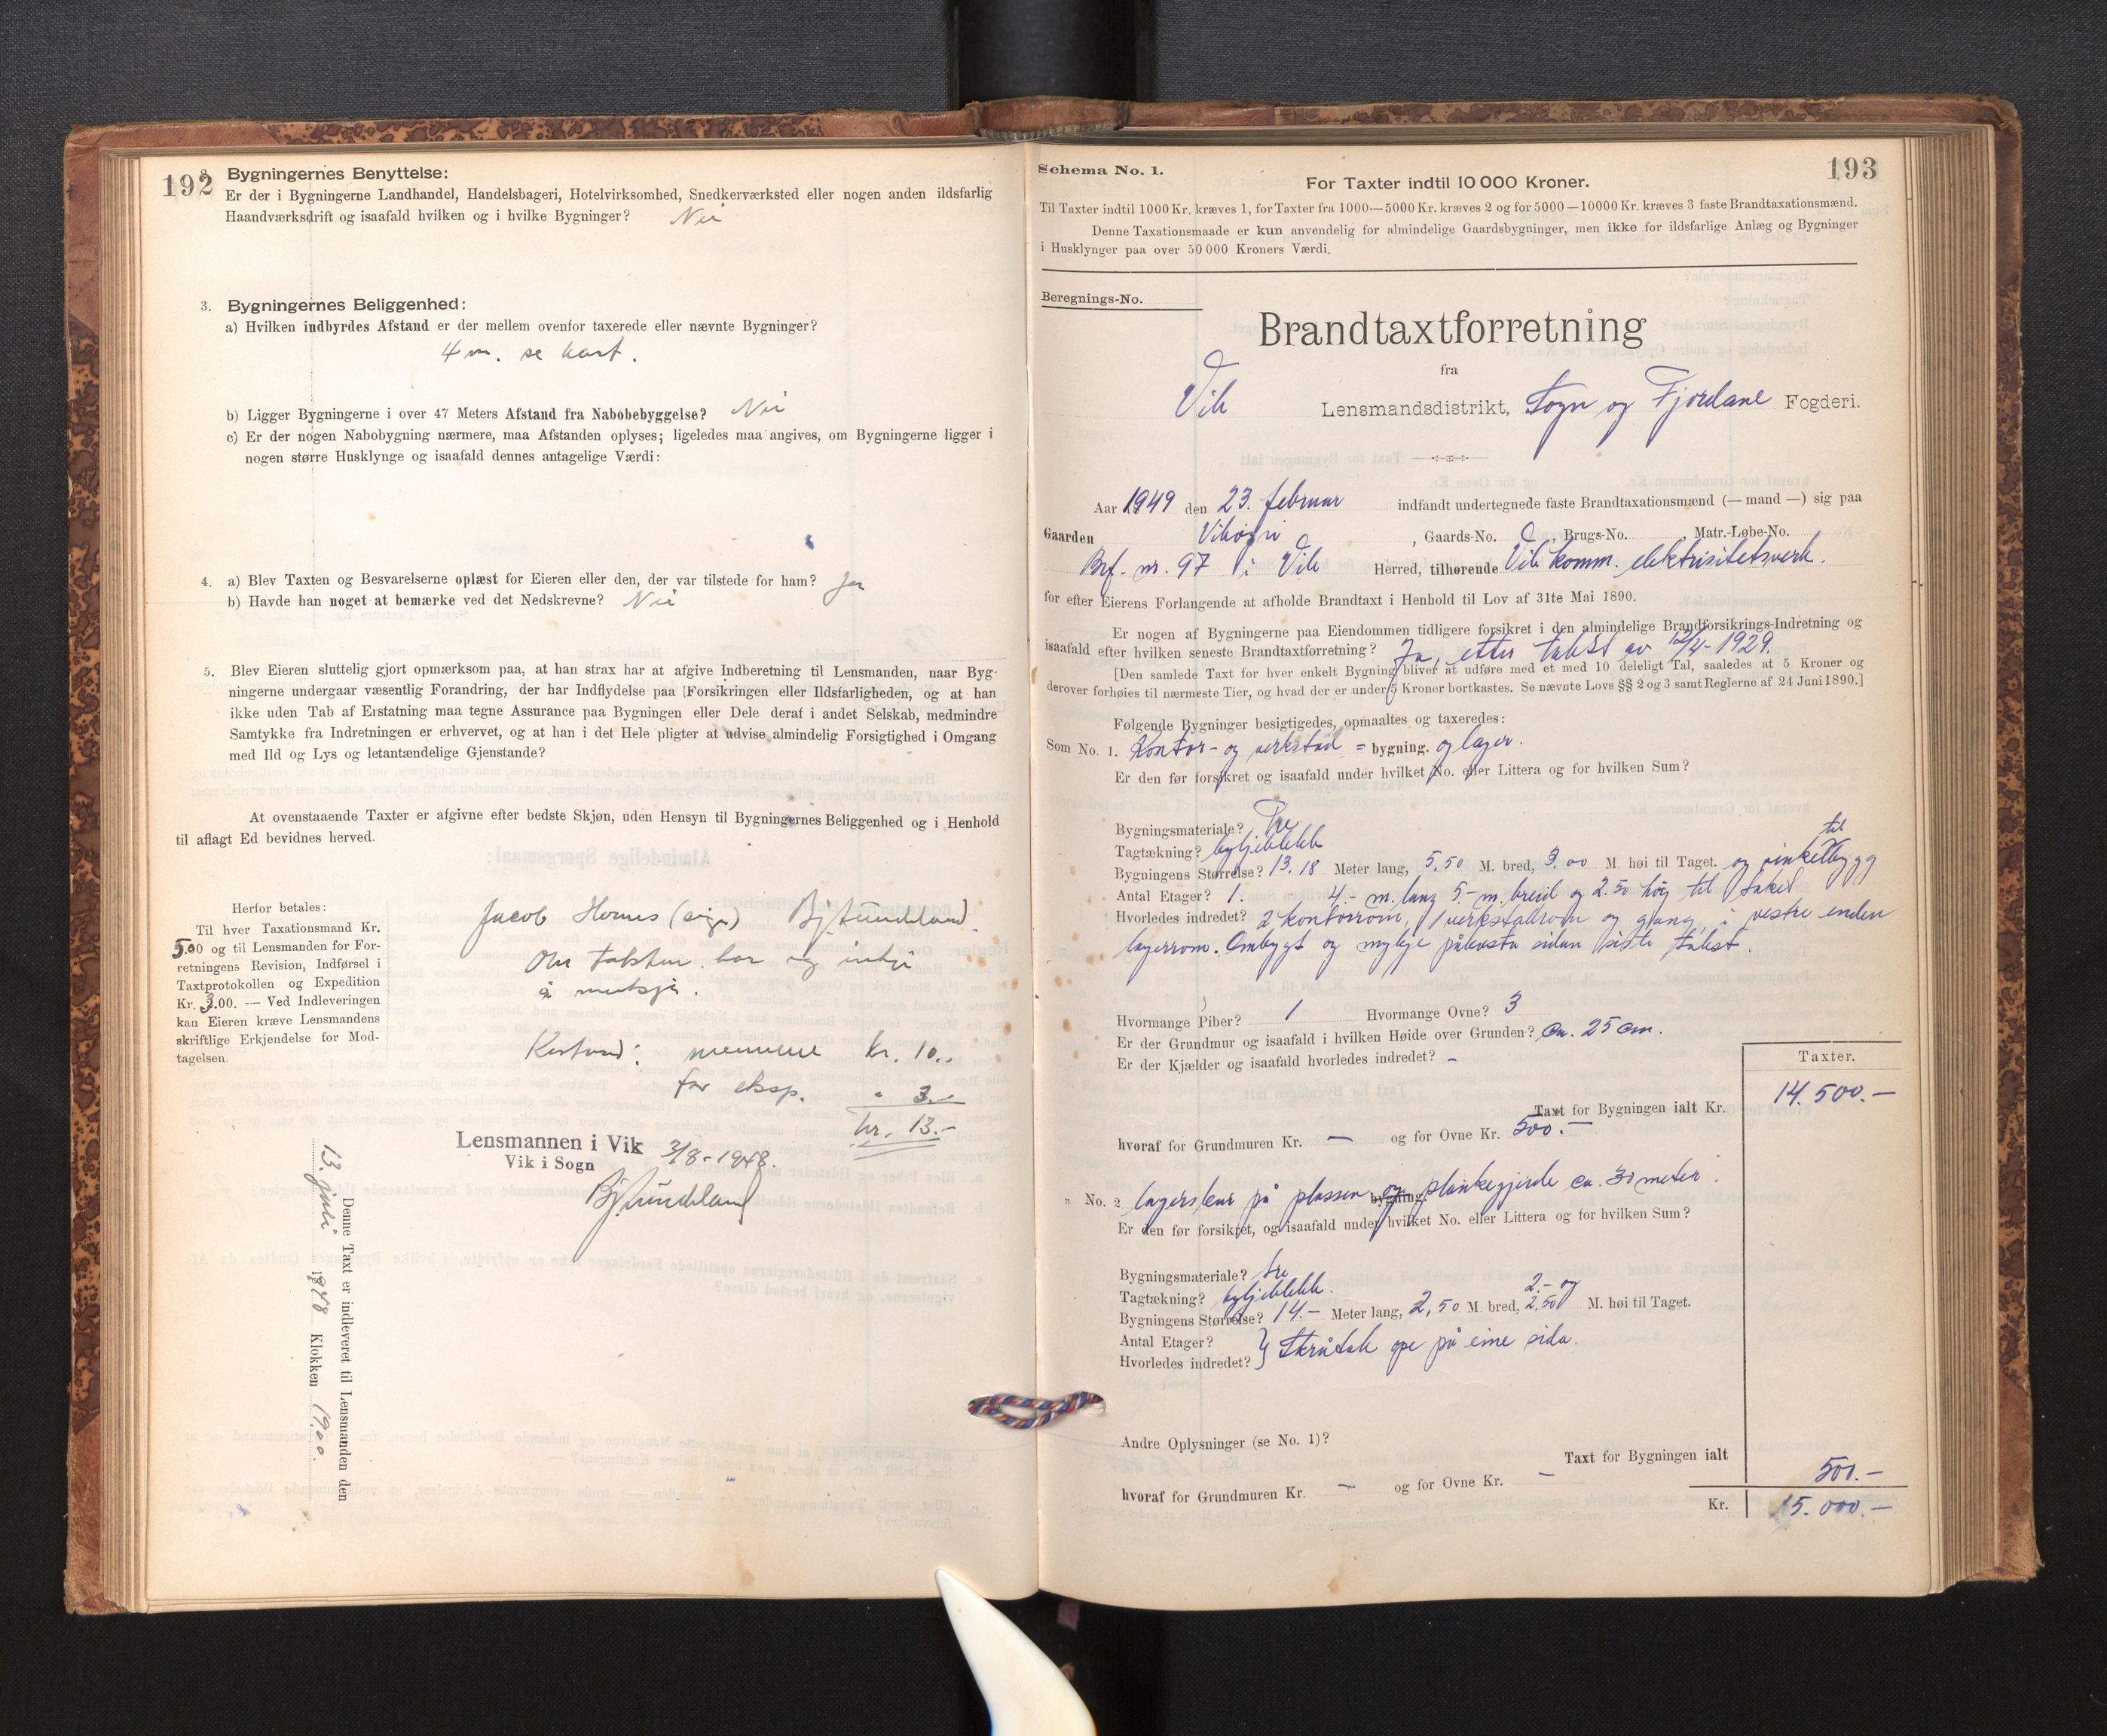 192
2. Bygningernes Benyttelse:
Er der i Bygningerne Landhandel, Handelsbageri, Hotelvirksomhed, Snedkerværksted eller nogen anden ildsfarlig
Haandværksdrift og isaafald hvilken og i hvilke Bygninger? Nei
3. Bygningernes Beliggenhed:
a) Hvilken indbyrdes Afstand er der mellem ovenfor taxerede eller nævnte Bygninger?
4 m. se kart.
b) Ligger Bygningerne i over 47 Meters Afstand fra Nabobebyggelse? Nei
c) Er der nogen Nabobygning nærmere, maa Afstanden oplyses; ligeledes maa angives, om Bygningerne ligger i
nogen større Husklynge og isaafald dennes antagelige Værdi:
4. a) Blev Taxten og Besvarelserne oplæst for Eieren eller den, der var tilstede for ham? Ja
b) Havde han noget at bemærke ved det Nedskrevne? Nei
5. Blev Eieren sluttelig gjort opmærksom paa, at han strax har at afgive Indberetning til Lensmanden, naar Byg-
ningerne undergaar væsentlig Forandring, der har Indflydelse paa Forsikringen eller Ildsfarligheden, og at han
ikke uden Tab af Erstatning maa tegne Assurance paa Bygningen eller Dele deraf i andet Selskab, medmindre
Samtykke fra Indretningen er erhvervet, og at han i det Hele pligter at udvise almindelig Forsigtighed i Omgang
med Ild og Lys og letantændelige Gjenstande?
At ovenstaaende Taxter er afgivne efter bedste Skjøn, uden Hensyn til Bygningernes Beliggenhed og i Henhold
til aflagt Ed bevidnes herved.
Jacob Hovus (sign) Bj. Sundeland.
Om taksten har eg inkje
å merkja.
Herfor betales:
Til hver Taxationsmand Kr.
5.00 og til Lensmanden for For-
retningens Revision, Indførsel i
Taxtprotokollen og Expedition
Kr. 3.00. — Ved Indleveringen
kan Eieren kræve Lensmandens
skriftlige Erkjendelse for Mod-
tagelsen.
Kostnad: mennene kr. 10.-
for eksp. " 3.-
kr. 13.-
Lensmannen i Vik 3/8-1948.
Vik i Sogn
Bj. Sundeland
Denne Taxt er indleveret til Lensmanden den
13. juli 1948 Klokken 19.00.
193
Schema No. 1.
For Taxter indtil 10 000 Kroner.
Til Taxter indtil 1000 Kr. kræves 1, for Taxter fra 1000—5000 Kr. kræves 2 og for 5000—10000 Kr. kræves 3 faste Brandtaxationsmænd.
Denne Taxationsmaade er kun anvendelig for almindelige Gaardsbygninger, men ikke for ildsfarlige Anlæg og Bygninger
i Husklynger paa over 50 000 Kroners Værdi.
Beregnings-No.
Brandtaxtforretning
fra
Vik Lensmandsdistrikt, Sogn og Fjordane Fogderi.
Aar 1949 den 23. februar indfandt undertegnede faste Brandtaxationsmænd (— mand —) sig paa
Gaarden Vikøyri, Gaards-No. , Brugs-No. , Matr.-Løbe-No.
Brf. nr. 97 i Vik Herred, tilhørende Vik komm. elektrisitetsverk.
for efter Eierens Forlangende at afholde Brandtaxt i Henhold til Lov af 31te Mai 1890.
Er nogen af Bygningerne paa Eiendommen tidligere forsikret i den almindelige Brandforsikrings-Indretning og
isaafald efter hvilken seneste Brandtaxtforretning? Ja, etter takst av 12/4-1929.
[Den samlede Taxt for hver enkelt Bygning bliver at udføre med et med 10 deleligt Tal, saaledes at 5 Kroner og
derover forhøies til nærmeste Tier, og hvad der er under 5 Kroner bortkastes. Se nævnte Lovs §§ 2 og 3 samt Reglerne af 24 Juni 1890.]
Følgende Bygninger besigtigedes, opmaaltes og taxeredes:
Som No. 1. Kontor- og verkstad = bygning. og lager.
Er den før forsikret og isaafald under hvilket No. eller Littera og for hvilken Sum?
Bygningsmateriale? Tre
Tagtækning? bylgjeblekk til
Bygningens Størrelse? 13.18 Meter lang, 5.50 M. bred, 3.00 M. høi til Taget. og vinkelbygg
Antal Etager? 1. 4.- m. lang 5.- m. breid og 2.50 høg til taket
Hvorledes indredet? 2 kontorrom, 1 verkstadrom og gang, i vestre enden
lagerrom. Ombygt og mykje påkosta sidan siste takst.
Hvormange Piber? 1 Hvormange Ovne? 3
Er der Grundmur og isaafald i hvilken Høide over Grunden? ca. 25 cm.
Er der Kjælder og isaafald hvorledes indredet? -
Taxter.
Taxt for Bygningen ialt Kr. 14.500.-
hvoraf for Grundmuren Kr. — og for Ovne Kr. 500.-
" No. 2 lagerskur på plassen og bygning. plankegjerde ca. 30 meter.
Er den før forsikret, og isaafald under hvilket No. eller Littera og for hvilken Sum?
Bygningsmateriale? tre
Tagtækning? bylgjeblekk. 2.- og
Bygningens Størrelse? 14.- Meter lang, 2,50 M. bred, 2.50 M. høi til Taget.
Antal Etager?
Hvorledes indredet? } Skråtak ope på eine sida.
Andre Oplysninger (se No. 1)?
Taxt for Bygningen ialt 500.-
hvoraf for Grundmuren Kr. — og for Ovne Kr. —
Kr. 15.000.-